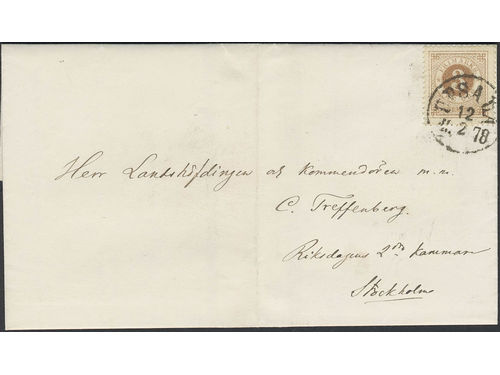 UPSALA
12
2 78
Herr Landshöfdingen och Kommendören m. m.
C. Treffenberg.
Riksdagens 2dra Kammare
Stockholm